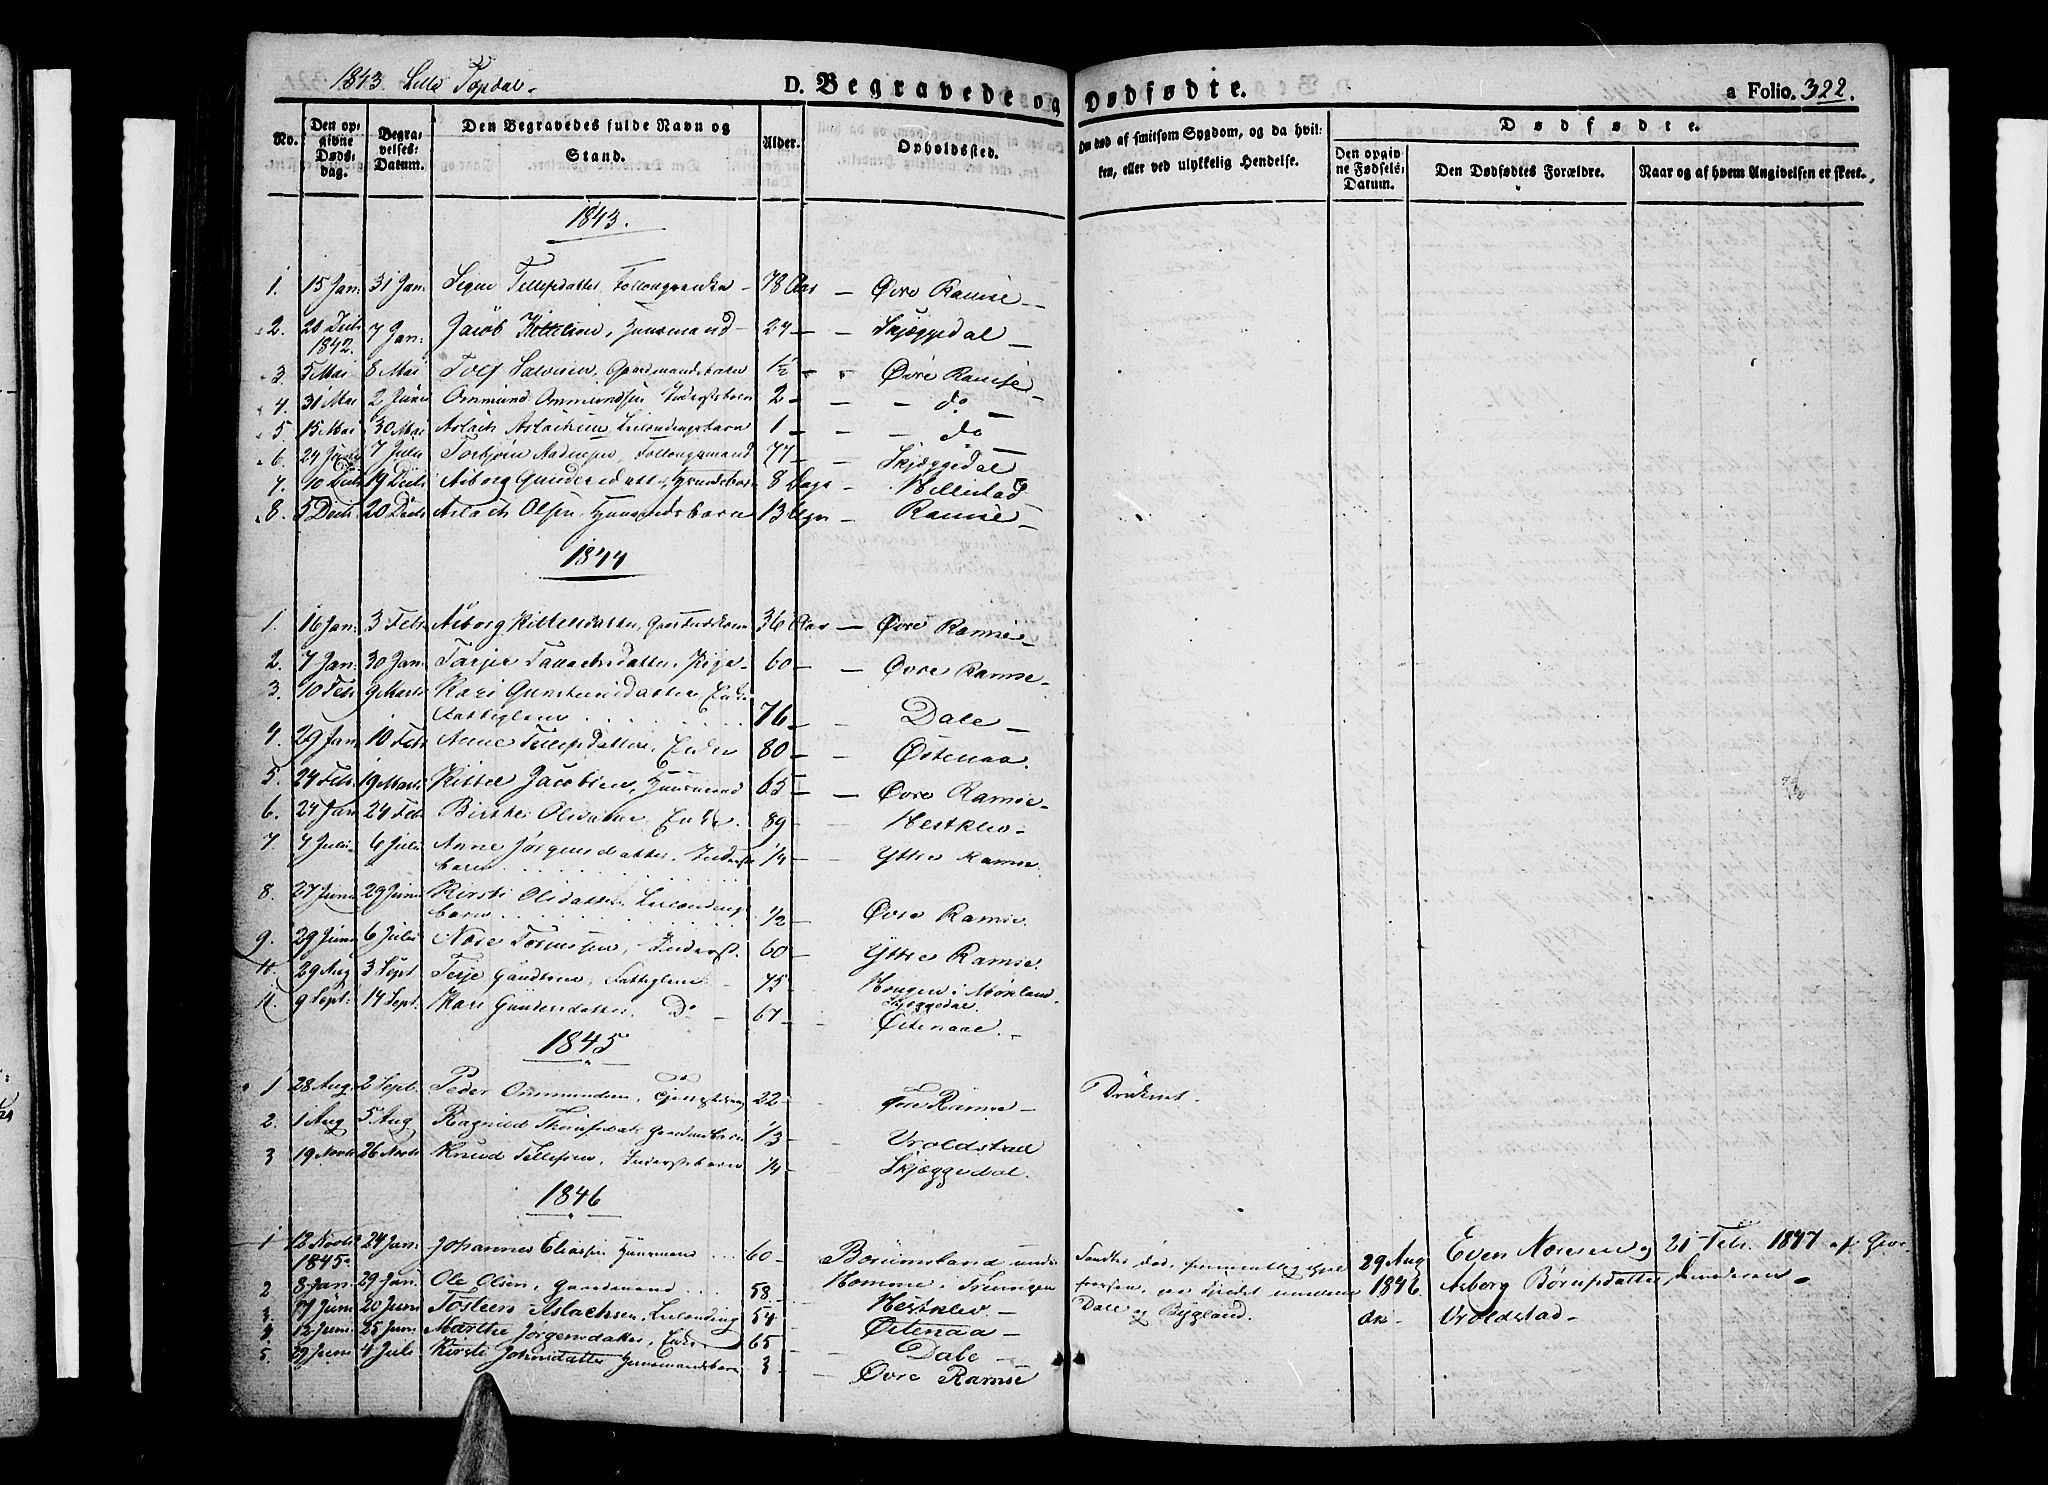 1843. Lille Topdal.
D. Begravede og Dødfødte.
a Folio. 322.
No.
Den opgivne Dødsdag.
Begravelses-Datum.
Den Begravedes fulde Navn og Stand.
Alder.
Opholdssted.
Om død af smitsom Sygdom, og da hvilken, eller ved ulykkelig Hendelse.
Dødfødte.
Den opgivne Fødsels-Datum.
Den Dødfødtes Forældre.
Naar og af hvem Angivelsen er skeet.
1843.
1. 15 Jan: 31 Jan: Signe Tellefsdatter, 78 Aar – Øvre Ramse –
2. 28 Decb 1842. 7 Jan: Jacob Kittelsen, Huusmand 24 – Skjæggedal –
3. 5 Mai 8 Mai Tolf Salvesen, Gaardmandsbarn 1/2 – Øvre Ramse –
4. 31 Mai 2 Juni Ommund Ommundsen Inderstsbarn 2 – – do –
5. 15 Mai 30 Mai Aslach Aslachsen Leilendingsbarn 1 – – do –
6. 24 Juni 7 Julii Torbjørn Aadnesen, 77 – Skjæggedal
7. 10 Decb 19 Decb Asborg Gundersdatter, Huusmdsbarn 8 Dage – Hillestad
8. 5 Decb 20 Decb Aslach Olsen, Huusmdsbarn 13 Uger – Ramse –
1844
1. 16 Jan: 3 Febr Asborg Kittelsdatter, 36 Aar – Øvre Ramse –
2. 7 Jan: 30 Jan: Tarjer Tallachsdatter, Pige 60 – Øvre Ramse –
3. 10 Febr 9 Marts Kari Gunsteinsdatter Enke
Fattiglem 76 – Dale –
4. 29 Jan: 10 Febr Anne Tellefsdatter, Enke 80 – Østenaa.
5. 24 Febr 19 Marts Kittel Jacobsen, Huusmand 65 – Øvre Ramse –
6. 24 Jan 24 Febr Birthe Olsdatter Enke. 89 – Hestklev –
7 4 Julii 6 Julii Anne Jørgensdatter, Inderst
barn 1/4 – Yttre Ramse.
8. 27 Juni 29 Juni Kirsti Olsdatter Leilendings
barn 1/2 – Øvre Ramse –
9. 29 Juni 6 Julii Nære Tormssen, Inderst. 60 – Yttre Ramse.
29 Aug 3 Sept. Terje Gundersen, Fattiglem 75 – Haugen i Moseland
Skjæggedal.
11. 9 Sept: 14 Sept. Kari Gundersdatter. Do – 67 – Østenaae. –
1845
1 28 Aug 2 Sept. Peder Ommundsen, 22 – Øvre Ramse – Druknet.
2. 1 Aug 5 Aug Ragnild 13 – Vroldstad
3 19 Novb 26 Novb Knud Tellefsen, Inderstsbarn 1/4 – Skjæggedal.
1846
1 12 Novb 1845. 24 Jan: Johannes Eliassen Huusmand 60 – under
2 8 Jan: 29 Jan: Ole Olsen, Gaardmand 58 – Homme i
3. 7 Juni 20 Juni Tosteen Aslachsen, Leilending 54 – Hestklev –
4 12 Juni 25 Juni Marthe Jørgensdatter, Enke 65 – Østenaa –
5. 29 Juni 4 Juli Kirsti Johnsdatter Huusmandsbarn 3 – Dale –
Øvre Ramse
Dale og Bygland.
29 Aug 1846
Even Nærsen og Asborg Børufsdatter Vroldstad –
21 Febr. 1847 af